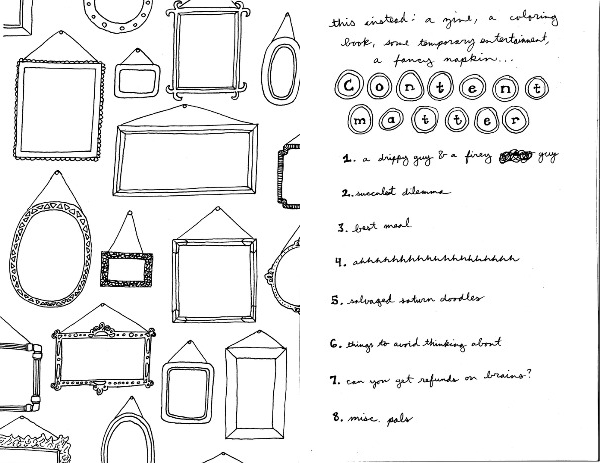 this instead: a zine, a coloring
book, some temporary entertainment,
a fancy napkin...
Content
matter
1. a drippy guy & a firey guy
2. succulent dilemma
3. best meal
4. ahhhhhhhhhhhhhhhhhhhh
5. salvaged saturn doodles
6. things to avoid thinking about
7. can you get refunds on brains?
8. misc. pals